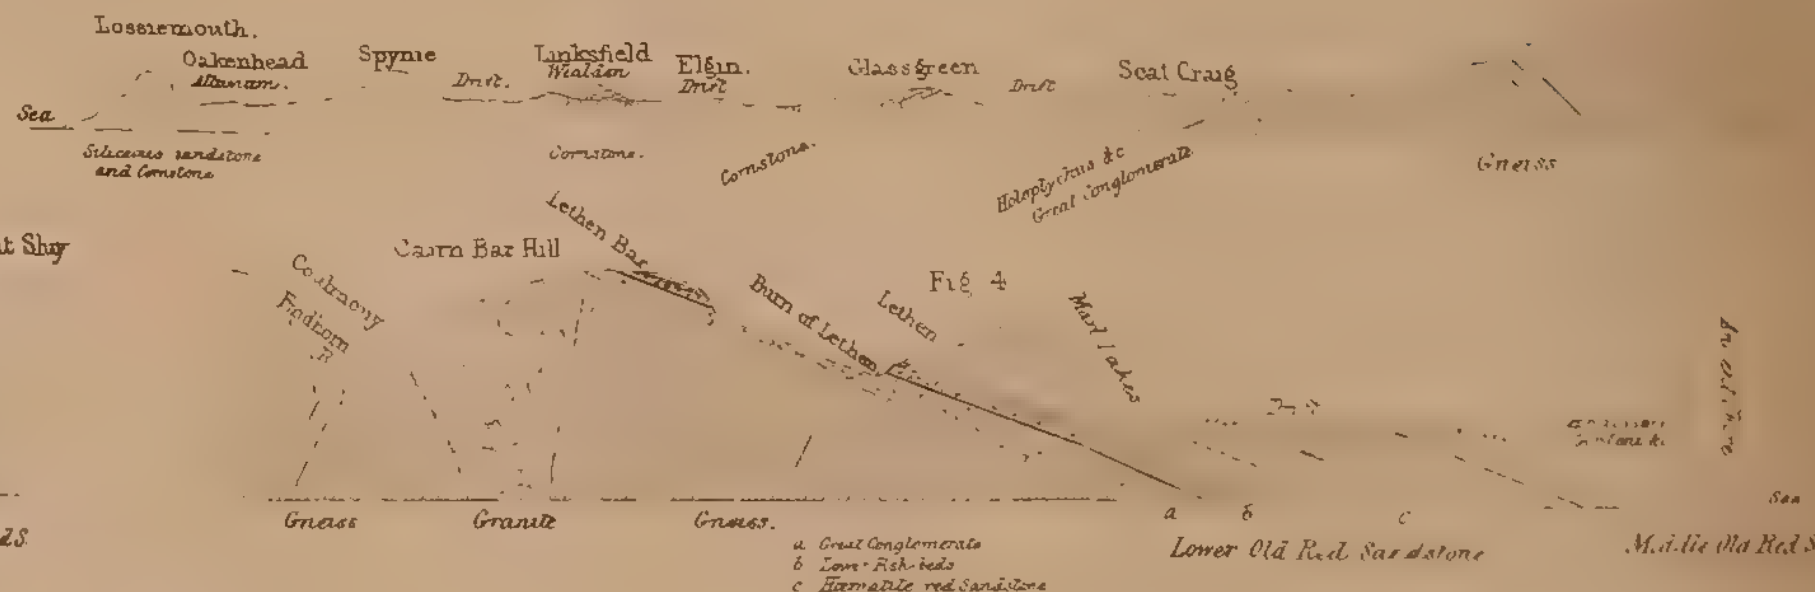 Lossiemouth.
Oakenhead
Alluvium.
Spynie
Drift.
Linksfield
Wealden
Elgin.
Drift
Glassgreen
Drift
Scat Craig
Sea
Siliceous sandstone
and Cornstone
Cornstone.
Cornstone.
Holoptychus &c
Great Conglomerate
Gneiss
Coulmony
Findhorn
R
Cairn Bar Hill
Lethen Bar
Burn of Lethen
Lethen
Fig 4
Marl Lakes
Drift
Sea
Gneiss
Granite
Gneiss.
a
b
c
a Great Conglomerate
b Lower Fish-beds
c Hæmatite red Sandstone
Lower Old Red Sandstone
Middle Old Red S